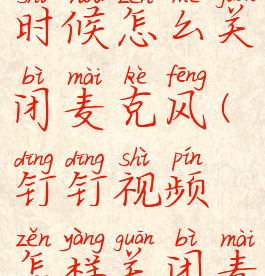 shí hòu zěn me guān
时候怎么关
bì mài kè fēng
闭麦克风(
dīng dīng shì pín
钉钉视频
zěn yàng guān bì mài
怎样关闭麦